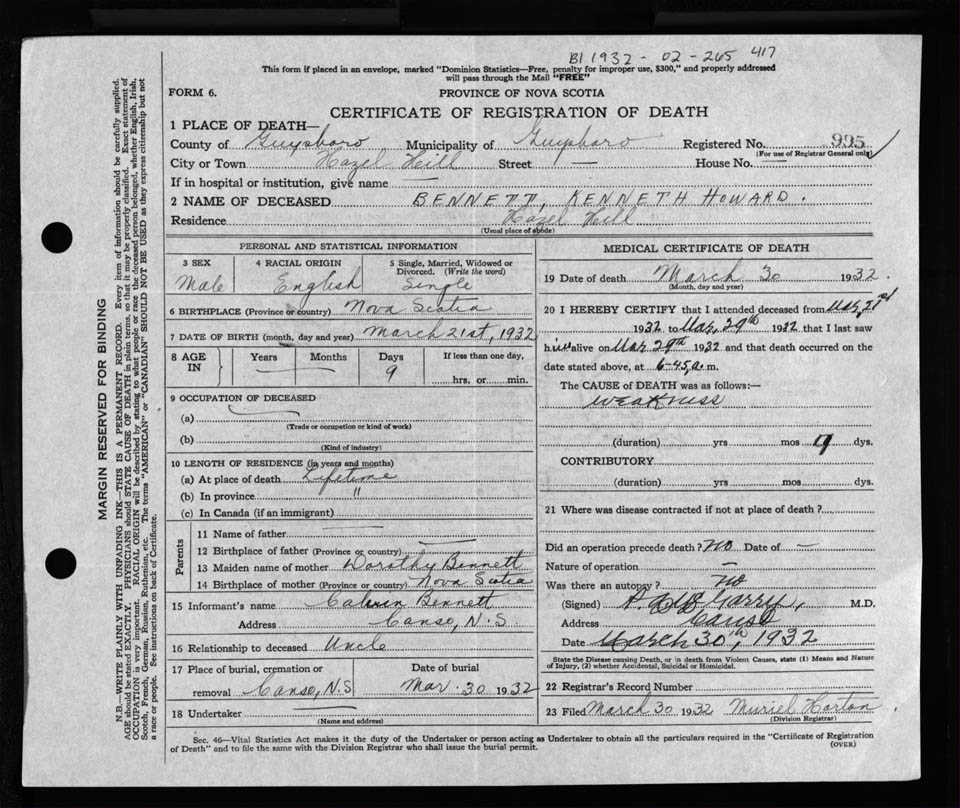 B1 1932 - 02 - 265 417
This form if placed in an envelope, marked "Dominion Statistics—Free, penalty for improper use, $300," and properly addressed
will pass through the Mail "FREE"
FORM 6.
PROVINCE OF NOVA SCOTIA
CERTIFICATE OF REGISTRATION OF DEATH
1 PLACE OF DEATH—
County of Guysboro Municipality of Guysboro Registered No. 995
(For use of Registrar General only)
City or Town Hazel Hill Street — House No. —
If in hospital or institution, give name —
2 NAME OF DECEASED BENNETT, KENNETH HOWARD.
Residence Hazel Hill
(Usual place of abode)
PERSONAL AND STATISTICAL INFORMATION
3 SEX 4 RACIAL ORIGIN 5 Single, Married, Widowed or
Divorced. (Write the word)
Male English Single
6 BIRTHPLACE (Province or country) Nova Scotia
7 DATE OF BIRTH (month, day and year) March 21st, 1932
8 AGE IN Years Months Days If less than one day,
— — 9 hrs. or min.
9 OCCUPATION OF DECEASED
(a)
(Trade or occupation or kind of work)
(b)
(Kind of industry)
10 LENGTH OF RESIDENCE (in years and months)
(a) At place of death Lifetime
(b) In province "
(c) In Canada (if an immigrant)
Parents
11 Name of father —
12 Birthplace of father (Province or country) —
13 Maiden name of mother Dorothy Bennett
14 Birthplace of mother (Province or country) Nova Scotia
15 Informant's name Calvin Bennett
Address Canso, N.S.
16 Relationship to deceased Uncle
17 Place of burial, cremation or
removal Canso, N.S
Date of burial
Mar. 30 1932
18 Undertaker
(Name and address)
MEDICAL CERTIFICATE OF DEATH
19 Date of death March 30 1932
(Month, day and year)
20 I HEREBY CERTIFY that I attended deceased from Mar,
1932 to Mar, 29th 1932 that I last saw
him alive on Mar 29th 1932 and that death occurred on the
date stated above, at 6-45, a. m.
The CAUSE OF DEATH was as follows:—
weakness
(duration) yrs mos 9 dys.
CONTRIBUTORY
(duration) yrs mos dys.
21 Where was disease contracted if not at place of death?
Did an operation precede death? No Date of —
Nature of operation —
Was there an autopsy? no
(Signed) Garry, M.D.
Address Canso
Date March 30th, 1932
State the Disease causing Death, or in death from Violent Causes, state (1) Means and Nature
of Injury, (2) whether Accidental, Suicidal or Homicidal.
22 Registrar's Record Number
23 Filed March 30 1932 Muriel Horton.
(Division Registrar)
Sec. 46—Vital Statistics Act makes it the duty of the Undertaker or person acting as Undertaker to obtain all the particulars required in the "Certificate of Registration
of Death" and to file the same with the Division Registrar who shall issue the burial permit.
(OVER)
MARGIN RESERVED FOR BINDING
N.B.—WRITE PLAINLY WITH UNFADING INK—THIS IS A PERMANENT RECORD. Every item of information should be carefully supplied.
AGE should be stated EXACTLY. PHYSICIANS should STATE CAUSE OF DEATH in plain terms, so that it may be properly classified. Exact statement of
OCCUPATION is very important. RACIAL ORIGIN will be described by stating to what people or race the deceased person belonged, whether English, Irish,
Scotch, French, German, Russian, Ruthenian, etc. The terms "AMERICAN" or "CANADIAN" SHOULD NOT BE USED as they express citizenship but not
a race or people. See instructions on back of Certificate.